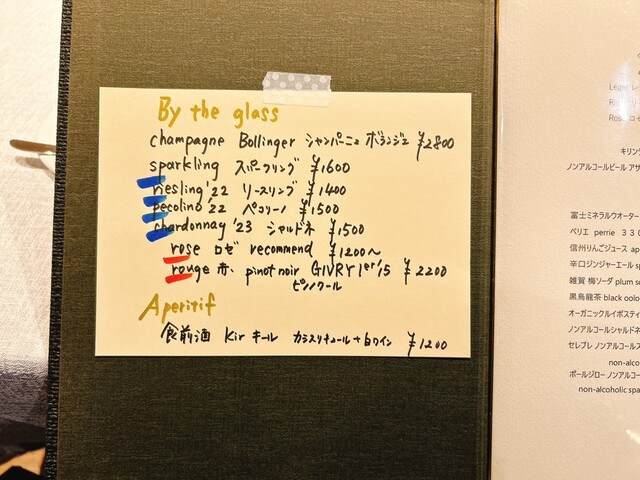 By the glass
champagne Bollinger シャンパーニュ ボランジェ ¥2800
sparkling スパークリング ¥1600
riesling '22 リースリング ¥1400
pecolino '22 ペコリーノ ¥1500
chardonnay '23 シャルドネ ¥1500
rose ロゼ recommend ¥1200~
rouge 赤. pinot noir GIVRY 1er '15 ¥2200
ピノノワール
Aperitif
食前酒 Kir キール カシスリキュール+白ワイン ¥1200
キリン
ノンアルコールビール アサ
富士ミネラルウオーター
ペリエ perrie 330
信州りんごジュース
辛口ジンジャーエール
雑賀 梅ソーダ plum
黒烏龍茶 black
オーガニックルイボスティ
ノンアルコールシャルドネ
セレブレ ノンアルコールス
non-alco
ポールジロー ノンアルコー
non-alcoholic spa